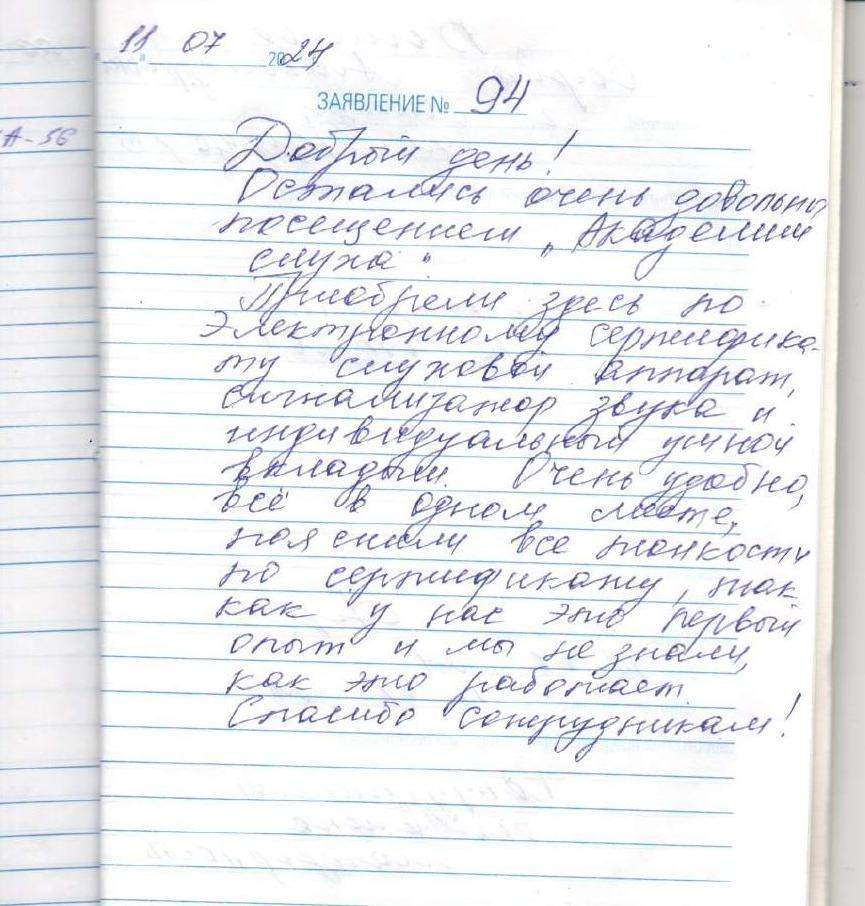 "11" 07 2024
ЗАЯВЛЕНИЕ № 94
А-56
Добрый день!
Остались очень довольны
посещением „Академии
слуха".
Приобрели здесь по
электронному сертифика-
ту слуховой аппарат,
сигнализатор звука и
индивидуальный ушной
вкладыш. Очень удобно,
всё в одном месте,
пояснили все тонкости
по сертификату, так
как у нас это первый
опыт и мы не знали,
как это работает
Спасибо сотрудникам!